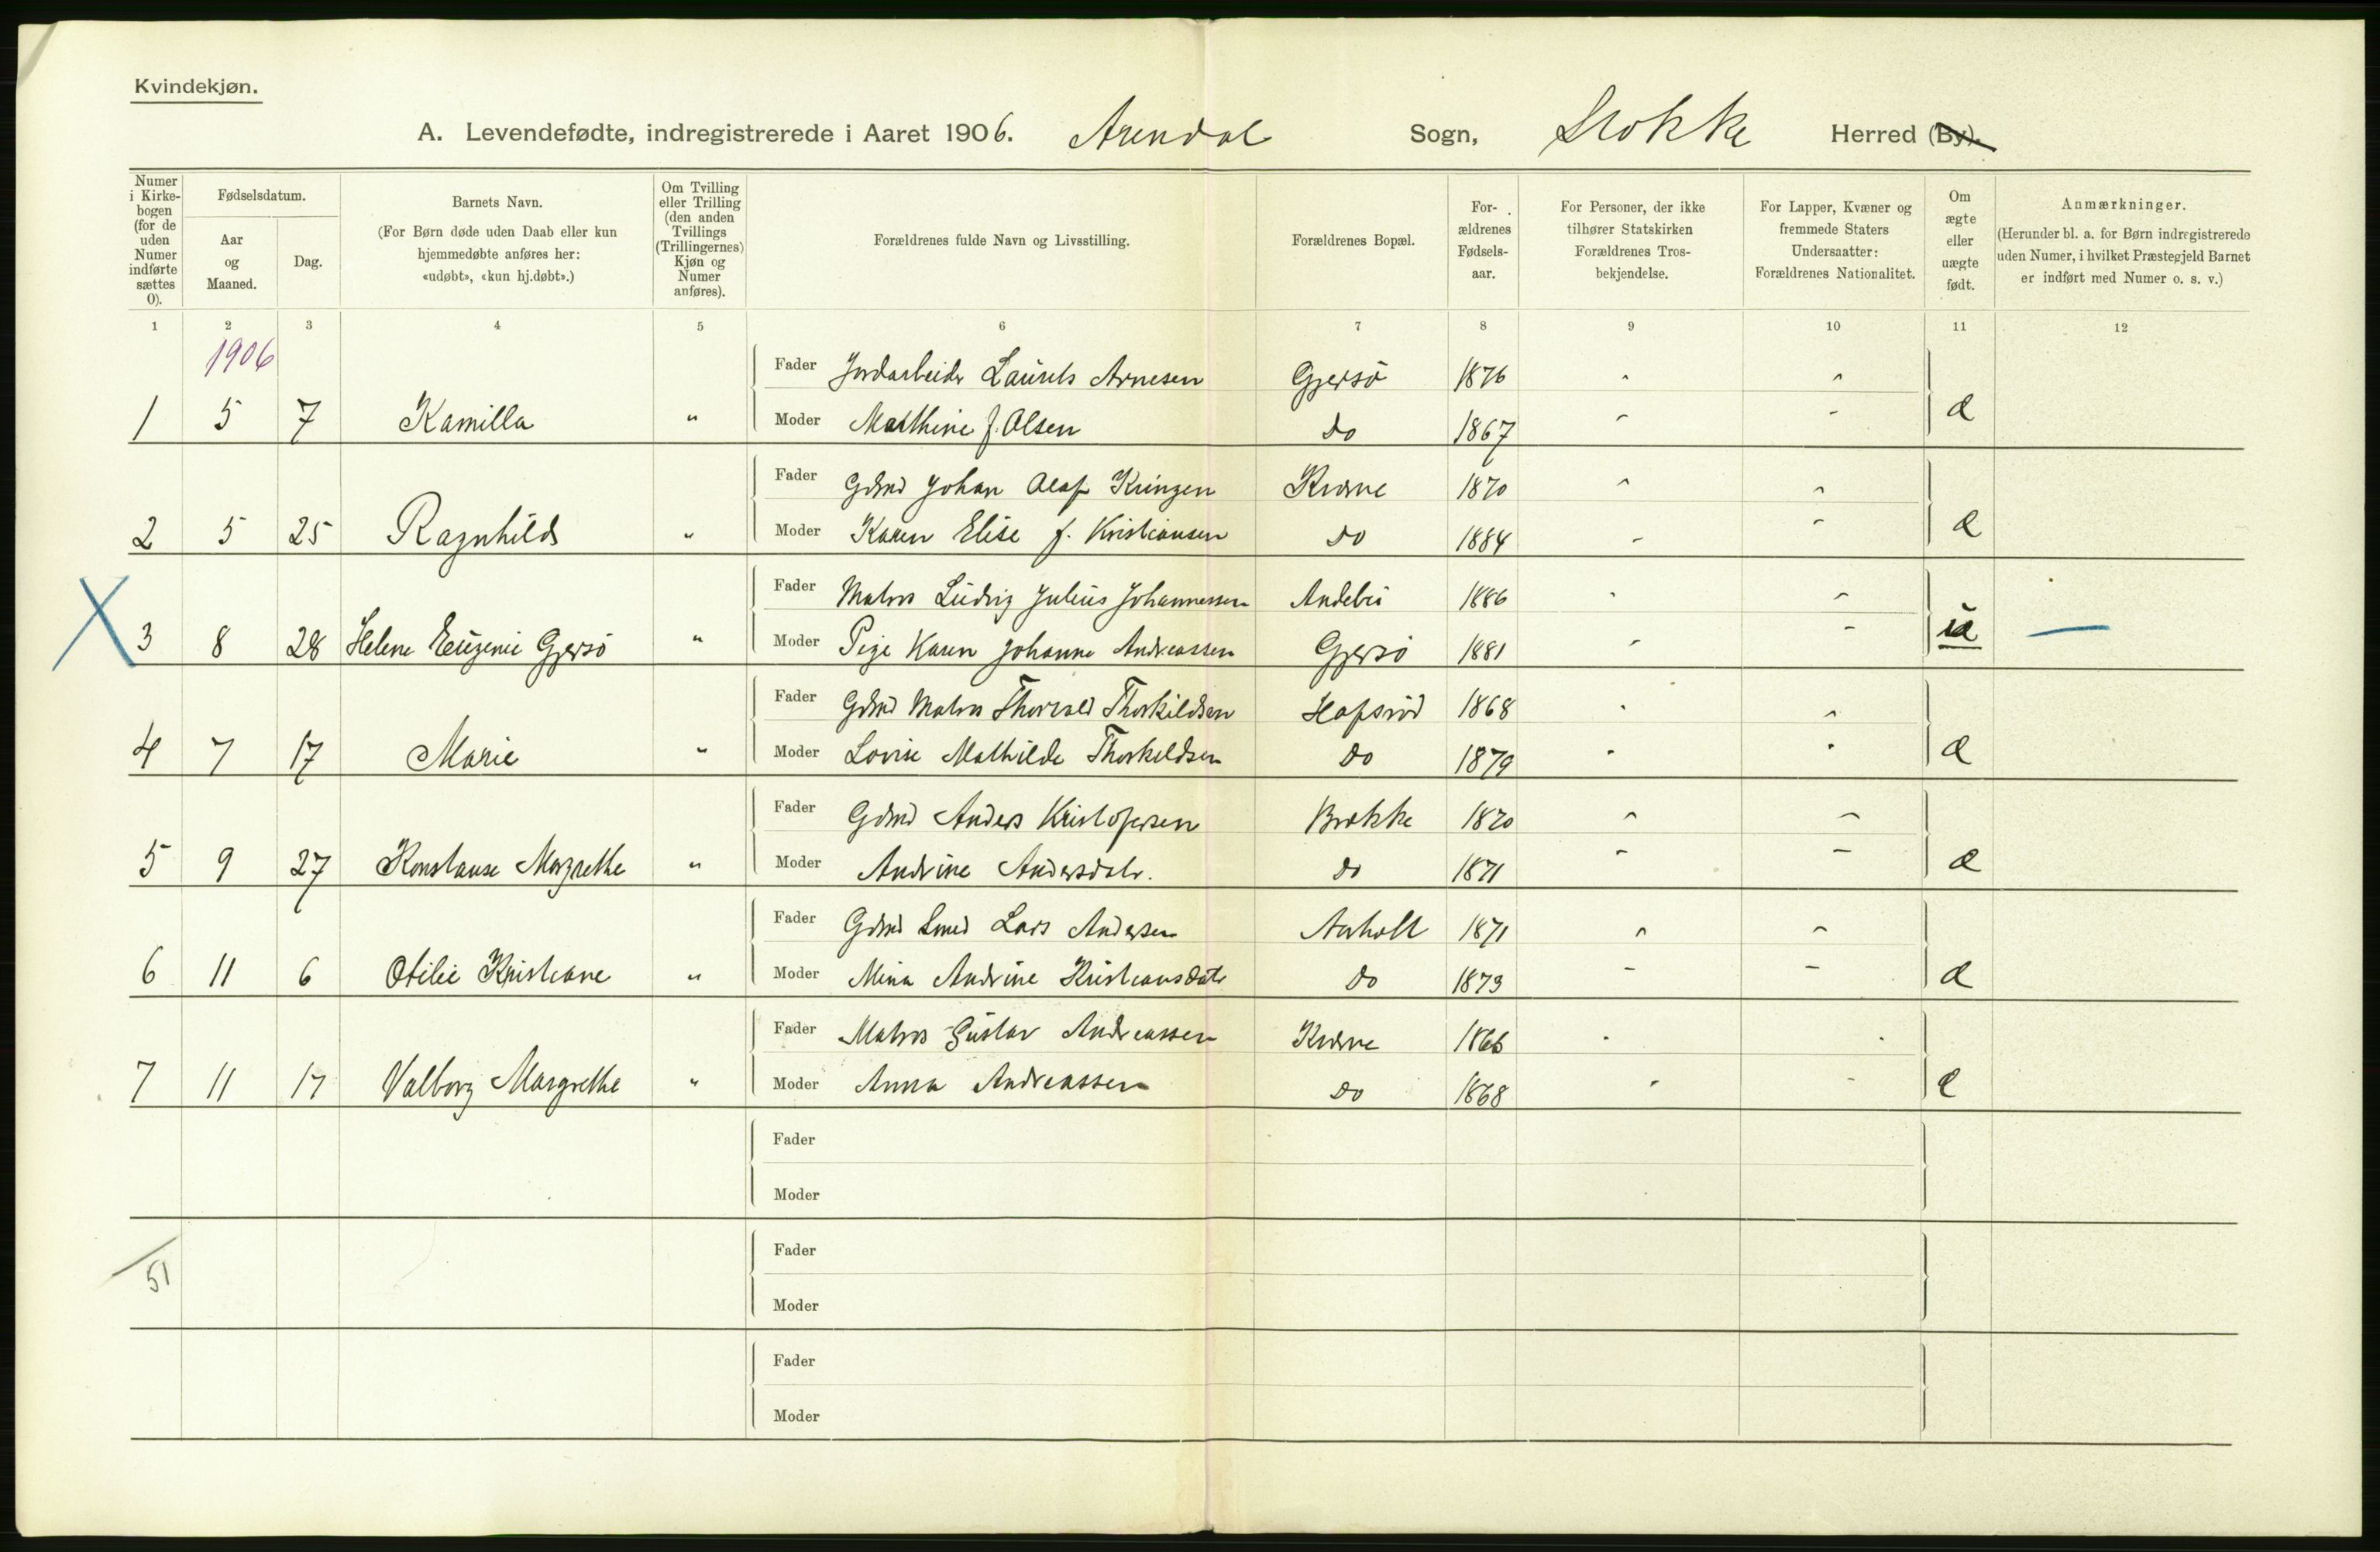 Kvindekjøn.
A. Levendefødte, indregistrerede i Aaret 1906. Arendal Sogn, Stokke Herred (By).
Numer i Kirkebogen (for de uden Numer indførte sættes 0).
Fødselsdatum.
Aar og Maaned.
Dag.
Barnets Navn.
(For Børn døde uden Daab eller kun hjemmedøbte anføres her: «udøbt», «kun hj.døbt».)
Om Tvilling eller Trilling (den anden Tvillings (Trillingernes) Kjøn og Numer anføres).
Forældrenes fulde Navn og Livsstilling.
Forældrenes Bopæl.
Forældrenes Fødselsaar.
For Personer, der ikke tilhører Statskirken Forældrenes Trosbekjendelse.
For Lapper, Kvæner og fremmede Staters Undersaatter: Forældrenes Nationalitet.
Om ægte eller uægte født.
Anmærkninger.
(Herunder bl. a. for Børn indregistrerede uden Numer, i hvilket Præstegjeld Barnet er indført med Numer o. s. v.)
1 2 3 4 5 6 7 8 9 10 11 12
1906
Fader Jordarbeider Laurits Arnesen Gjersö 1876
1 5 7 Kamilla " Moder Mathine f. Olsen do 1867 æ
Fader Gdmd Johan Olaf Kringen Kverne 1870
2 5 25 Ragnhild " Moder Karen Elise f. Kristiansen do 1884 æ
Fader Matros Ludvig Julius Johannessen Andebu 1886
X 3 8 28 Helene Eugenie Gjersö " Moder Pige Karen Johanne Andreassen Gjersö 1881 uæ —
Fader Gdmd Matros Thorvald Thorkildsen Hafsröd 1868
4 7 17 Marie " Moder Lovise Mathilde Thorkildsen do 1879 æ
Fader Gdmd Anders Kristofersen Brække 1870
5 9 27 Konstanse Margrethe " Moder Andrine Andersdatr. do 1871 æ
Fader Gdmd Smed Lars Andersen Aarholt 1871
6 11 6 Otilie Kristiane " Moder Mina Andrine Kristiansdatr do 1873 æ
Fader Matros Gustav Andreassen Kverne 1866
7 11 17 Valborg Margrethe " Moder Anna Andreassen do 1868 æ
Fader
Moder
51
Fader
Moder
Fader
Moder